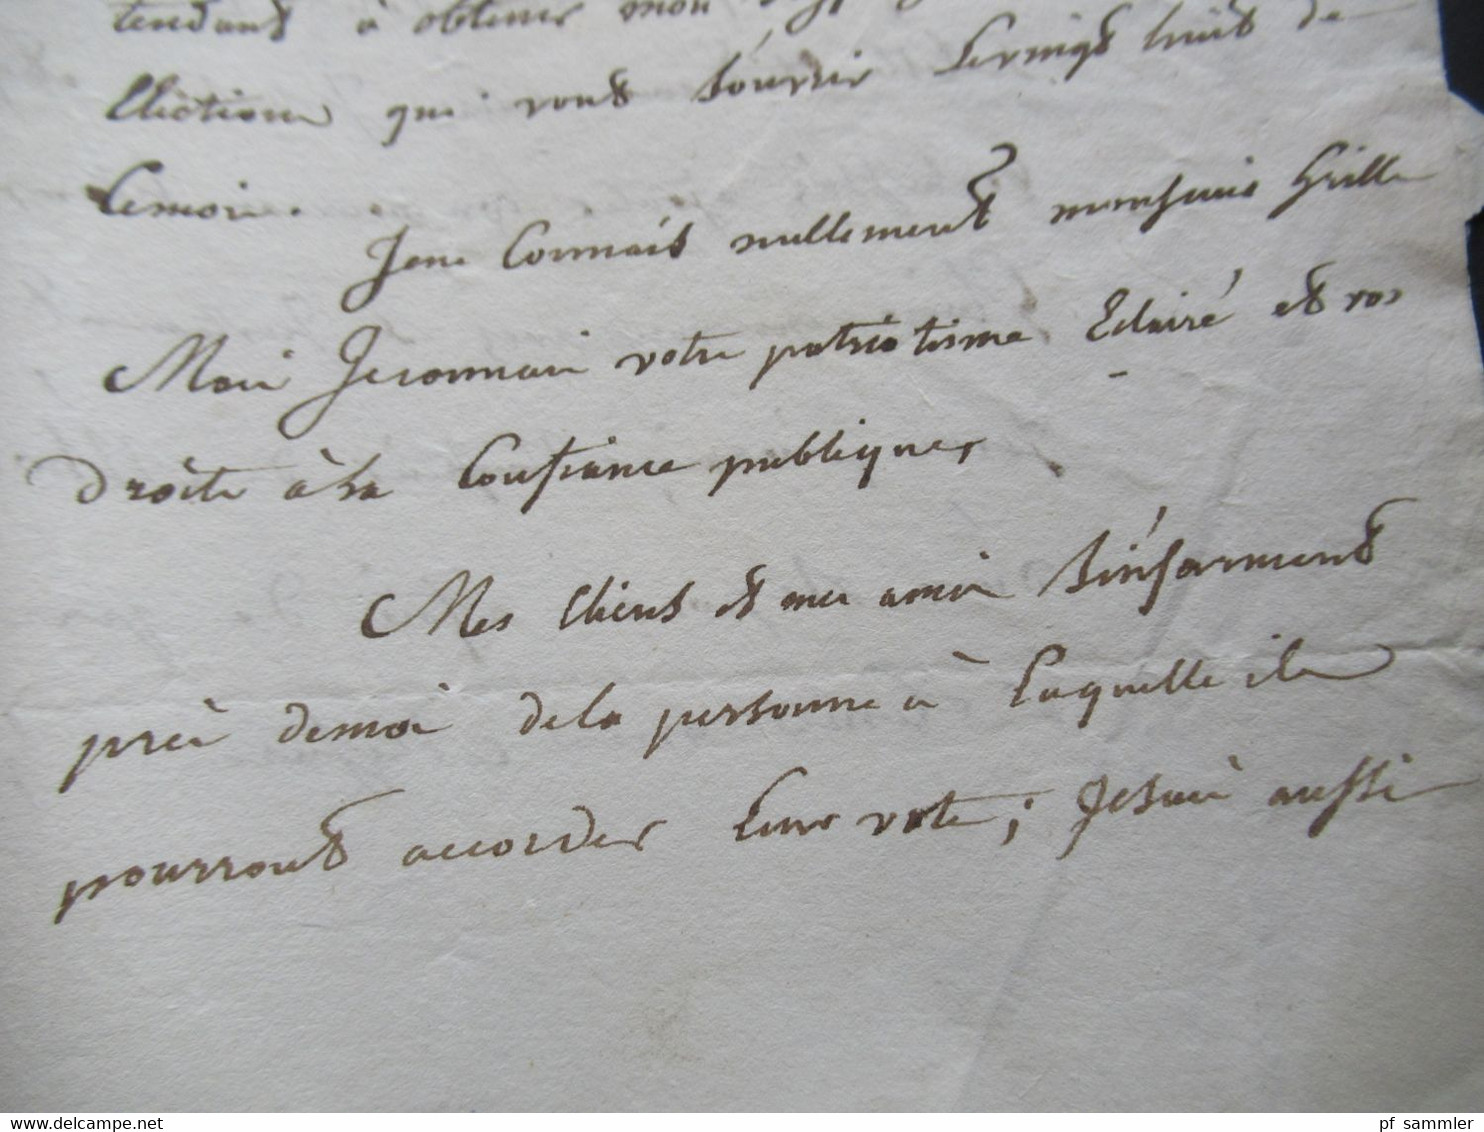 tendant à obtenir mon
Elections qui vont s'ouvrir le vingt huit de
ce mois.
Je ne Connais nullement monsieur Grille
Mais Je connais votre patriotisme Eclairé et vos
droits à la Confiance publiques
Mes Cliens et mes amis s'informent
près de moi de la personne à laquelle ils
pourront accorder leur vote; Je suis aussi
www.delcampe.net
pf_sammler